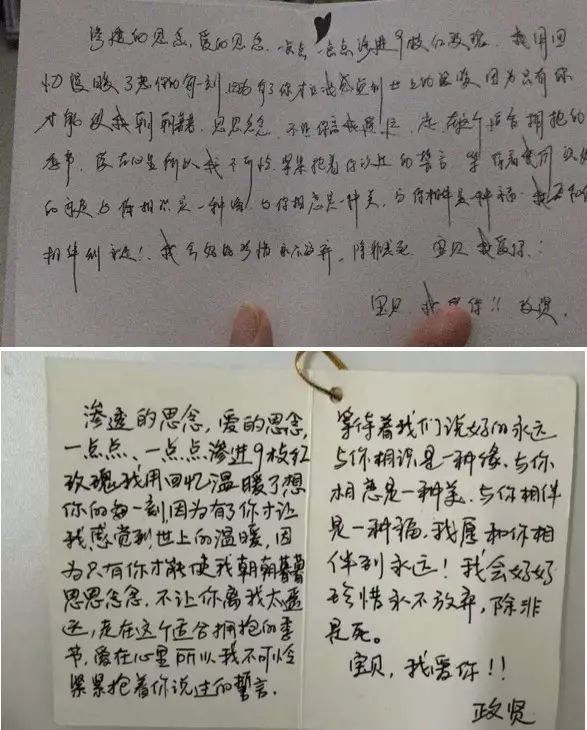 渗透的思念,爱的思念,一点点 一点点渗进9枚红玫瑰 我用回
忆温暖了想你的每一刻,因为有了你才让我感觉到世上的温暖 因为只有你
才能使我朝朝暮暮 思思念念 不让你离我 走在这个适合拥抱的
季节 爱在心里所以我不可怜 紧紧抱着你说过的誓言 等待着我们说好
的永远 与你相识是一种缘 与你相恋是一种美 与你相伴是一种福 我愿和你
相伴到永远! 我会好好珍惜永不放弃,除非是死 宝贝 我爱你
宝贝 我爱你!! 政贤
渗透的思念,爱的思念,
一点点、一点点渗进9枚红
玫瑰我用回忆温暖了想
你的每一刻,因为有了你才让
我感觉到世上的温暖,因
为只有你才能使我朝朝暮暮
思思念念,不让你离我太遥
远,走在这个适合拥抱的季
节,爱在心里所以我不可怜
紧紧抱着你说过的誓言.
等待着我们说好的永远
与你相识是一种缘、与你
相恋是一种美、与你相伴
是一种福,我愿和你相
伴到永远!我会好好
珍惜永不放弃,除非
是死。
宝贝,我爱你!!
政贤